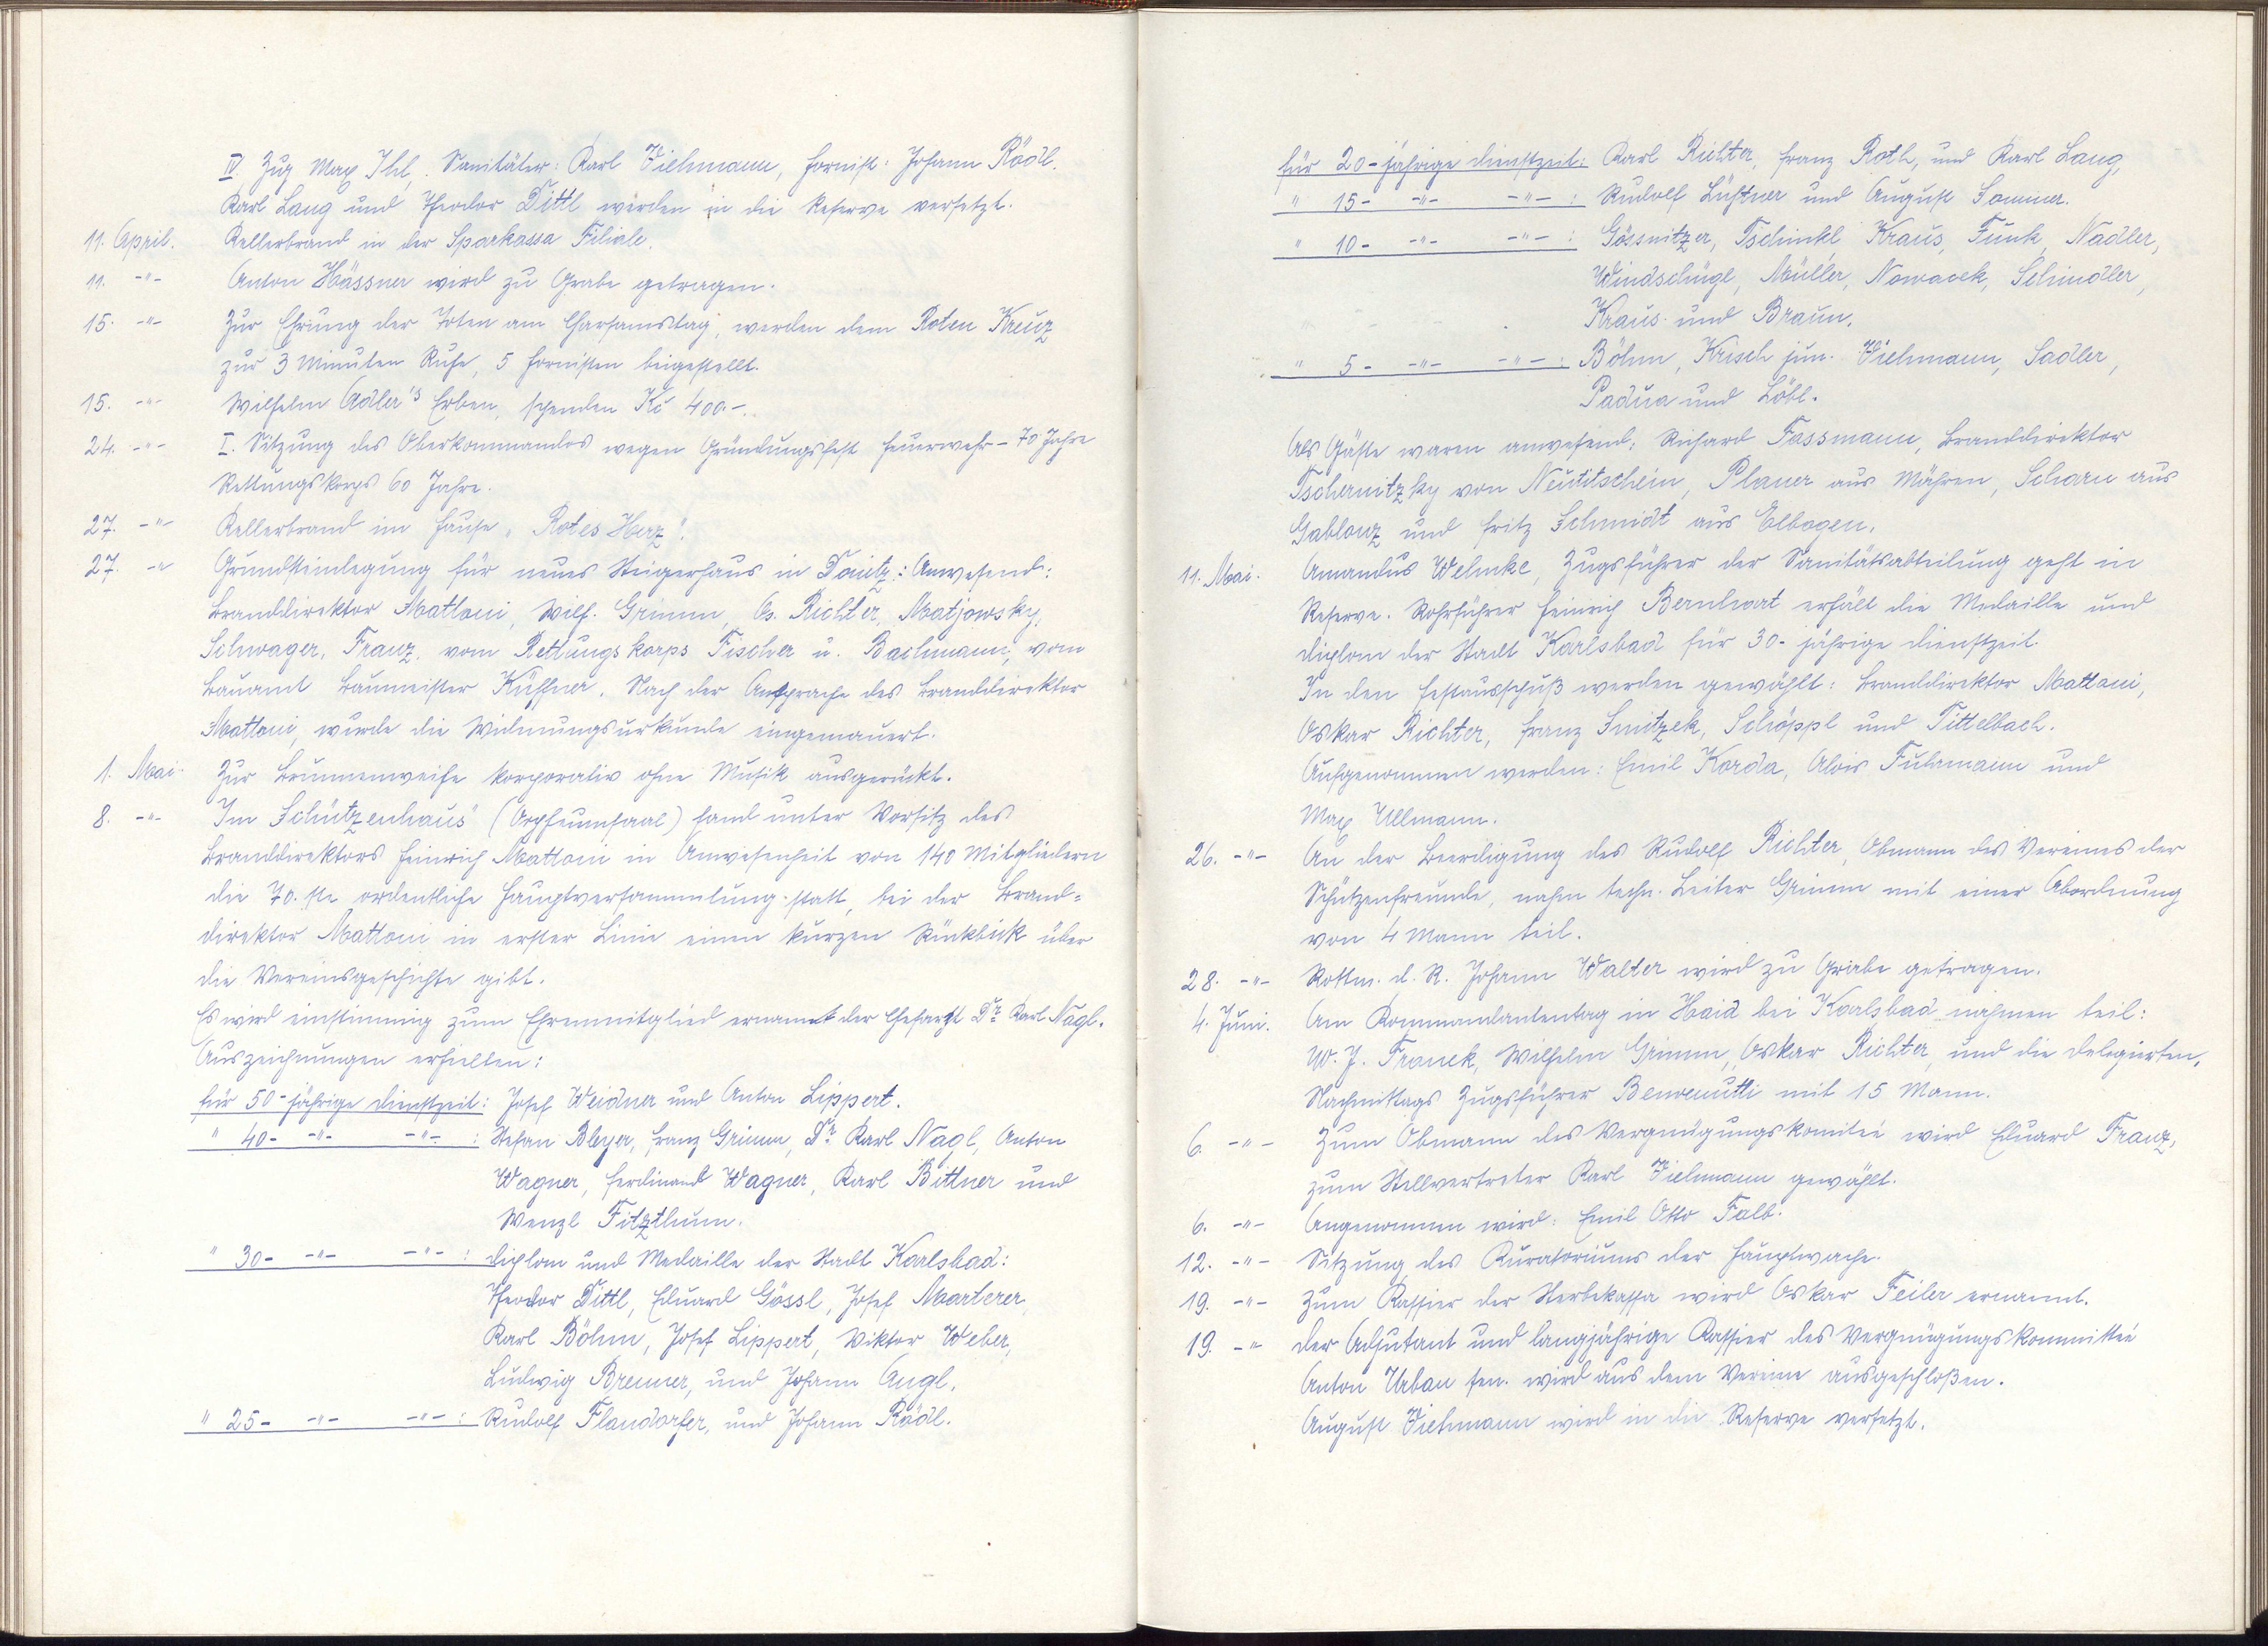 IV Zug Max Ihl, Sanitäter: Karl Viehmann, Hornist: Johann Rödl.
Karl Lang und Theodor Dittl werden in die Reserve versetzt.
11. April. Kellerbrand in der Sparkassa Filiale.
11. -"- Anton Hässner wird zu Grabe getragen.
15. -"- Zur Ehrung der Toten am Charsamstag, werden dem Roten Kreuz
zur 3 Minuten Ruhe, 5 Hornisten beigestellt.
15. -"- Wilhelm Adler's Erben, spenden Kč 400.-.
24. -"- I. Sitzung des Oberkommandos wegen Gründungsfest Feuerwehr - 70 Jahre
Rettungskorps 60 Jahre.
27. -"- Kellerbrand im Hause „Rotes Herz".
27. -"- Grundsteinlegung für neues Steigerhaus in Donitz: Anwesend:
Branddirektor Mattoni, Wilh. Grimm, Os. Richter, Matjowsky,
Schwager, Franz, vom Rettungskorps Fischer u. Bachmann, vom
Bauamt Baumeister Küffner. Nach der Ansprache des Branddirektor
Mattoni, wurde die Widmungsurkunde eingemauert.
1. Mai. Zur Brunnenweihe korporativ ohne Musik ausgerückt.
8. -"- Im Schützenhaus (Orpheumsaal) fand unter Vorsitz des
Branddirektors Heinrich Mattoni in Anwesenheit von 140 Mitgliedern
die 70. ste ordentliche Hauptversammlung statt, bei der Brand=
direktor Mattoni in erster Linie einen kurzen Rückblick über
die Vereinsgeschichte gibt.
Es wird einstimmig zum Ehrenmitglied ernannt der Chefarzt Dr. Karl Nagl.
Auszeichnungen erhielten:
für 50-jährige Dienstzeit: Josef Weidner und Anton Lippert.
" 40- -"- -"- : Stefan Bleyer, Franz Grimm, Dr. Karl Nagl, Anton
Wagner, Ferdinand Wagner, Karl Bittner und
Wenzl Fitzthum.
" 30- -"- -"- : Diplom und Medaille der Stadt Karlsbad:
Theodor Dittl, Eduard Gössl, Josef Marterer,
Karl Böhm, Josef Lippert, Viktor Weber,
Ludwig Brenner, und Johann Angl.
" 25- -"- -"- : Rudolf Flandorfer, und Johann Rödl.
für 20-jährige Dienstzeit: Karl Richter, Franz Roth, und Karl Lang,
" 15- -"- -"- : Rudolf Lüftner und August Sommer.
" 10- -"- -"- : Gössnitzer, Tschinkl Kraus, Funk, Nadler,
Windschügl, Müller, Nowacek, Schindler,
Kraus und Braun.
" 5- -"- -"- : Böhm, Krisch jun. Viehmann, Sadler,
Padua und Löbl.
Als Gäste waren anwesend: Richard Fassmann, Branddirektor
Tschernitzky von Neutitschein, Planer aus Mähren, Scharn aus
Gablonz und Fritz Schmidt aus Elbogen.
11. Mai. Amandus Wehnke, Zugsführer der Sanitätsabteilung geht in
Reserve. Rohrführer Heinrich Bernhart erhält die Medaille und
Diplom der Stadt Karlsbad für 30-jährige Dienstzeit.
In den Festausschuß werden gewählt: Branddirektor Mattoni,
Oskar Richter, Franz Smitzek, Schöppl und Tittelbach.
Aufgenommen werden: Emil Korda, Alois Fuhrmann und
Max Ullmann.
26. -"- An der Beerdigung des Rudolf Richter, Obmann des Vereines der
Schützenfreunde, nahm techn. Leiter Grimm mit einer Abordnung
von 4 Mann teil.
28. -"- Rottm. d. R. Johann Walter wird zu Grabe getragen.
4. Juni. Am Kommandantentag in Haid bei Karlsbad nahmen teil:
W. J. Franek, Wilhelm Grimm, Oskar Richter, und die Delegierten,
Nachmittags Zugsführer Benvenutti mit 15 Mann.
6. -"- Zum Obmann des Vergnügungskomiteé wird Eduard Franz,
zum Stellvertreter Karl Viehmann gewählt.
6. -"- Angenommen wird: Emil Otto Falb.
12. -"- Sitzung des Kuratoriums der Hauptwache.
19. -"- Zum Kassier der Sterbekassa wird Oskar Feiler ernannt.
19. -"- Der Adjutant und langjährige Kassier des Vergnügungskommitteé
Anton Urban sen. wird aus dem Vereine ausgeschloßen.
August Viehmann wird in die Reserve versetzt.